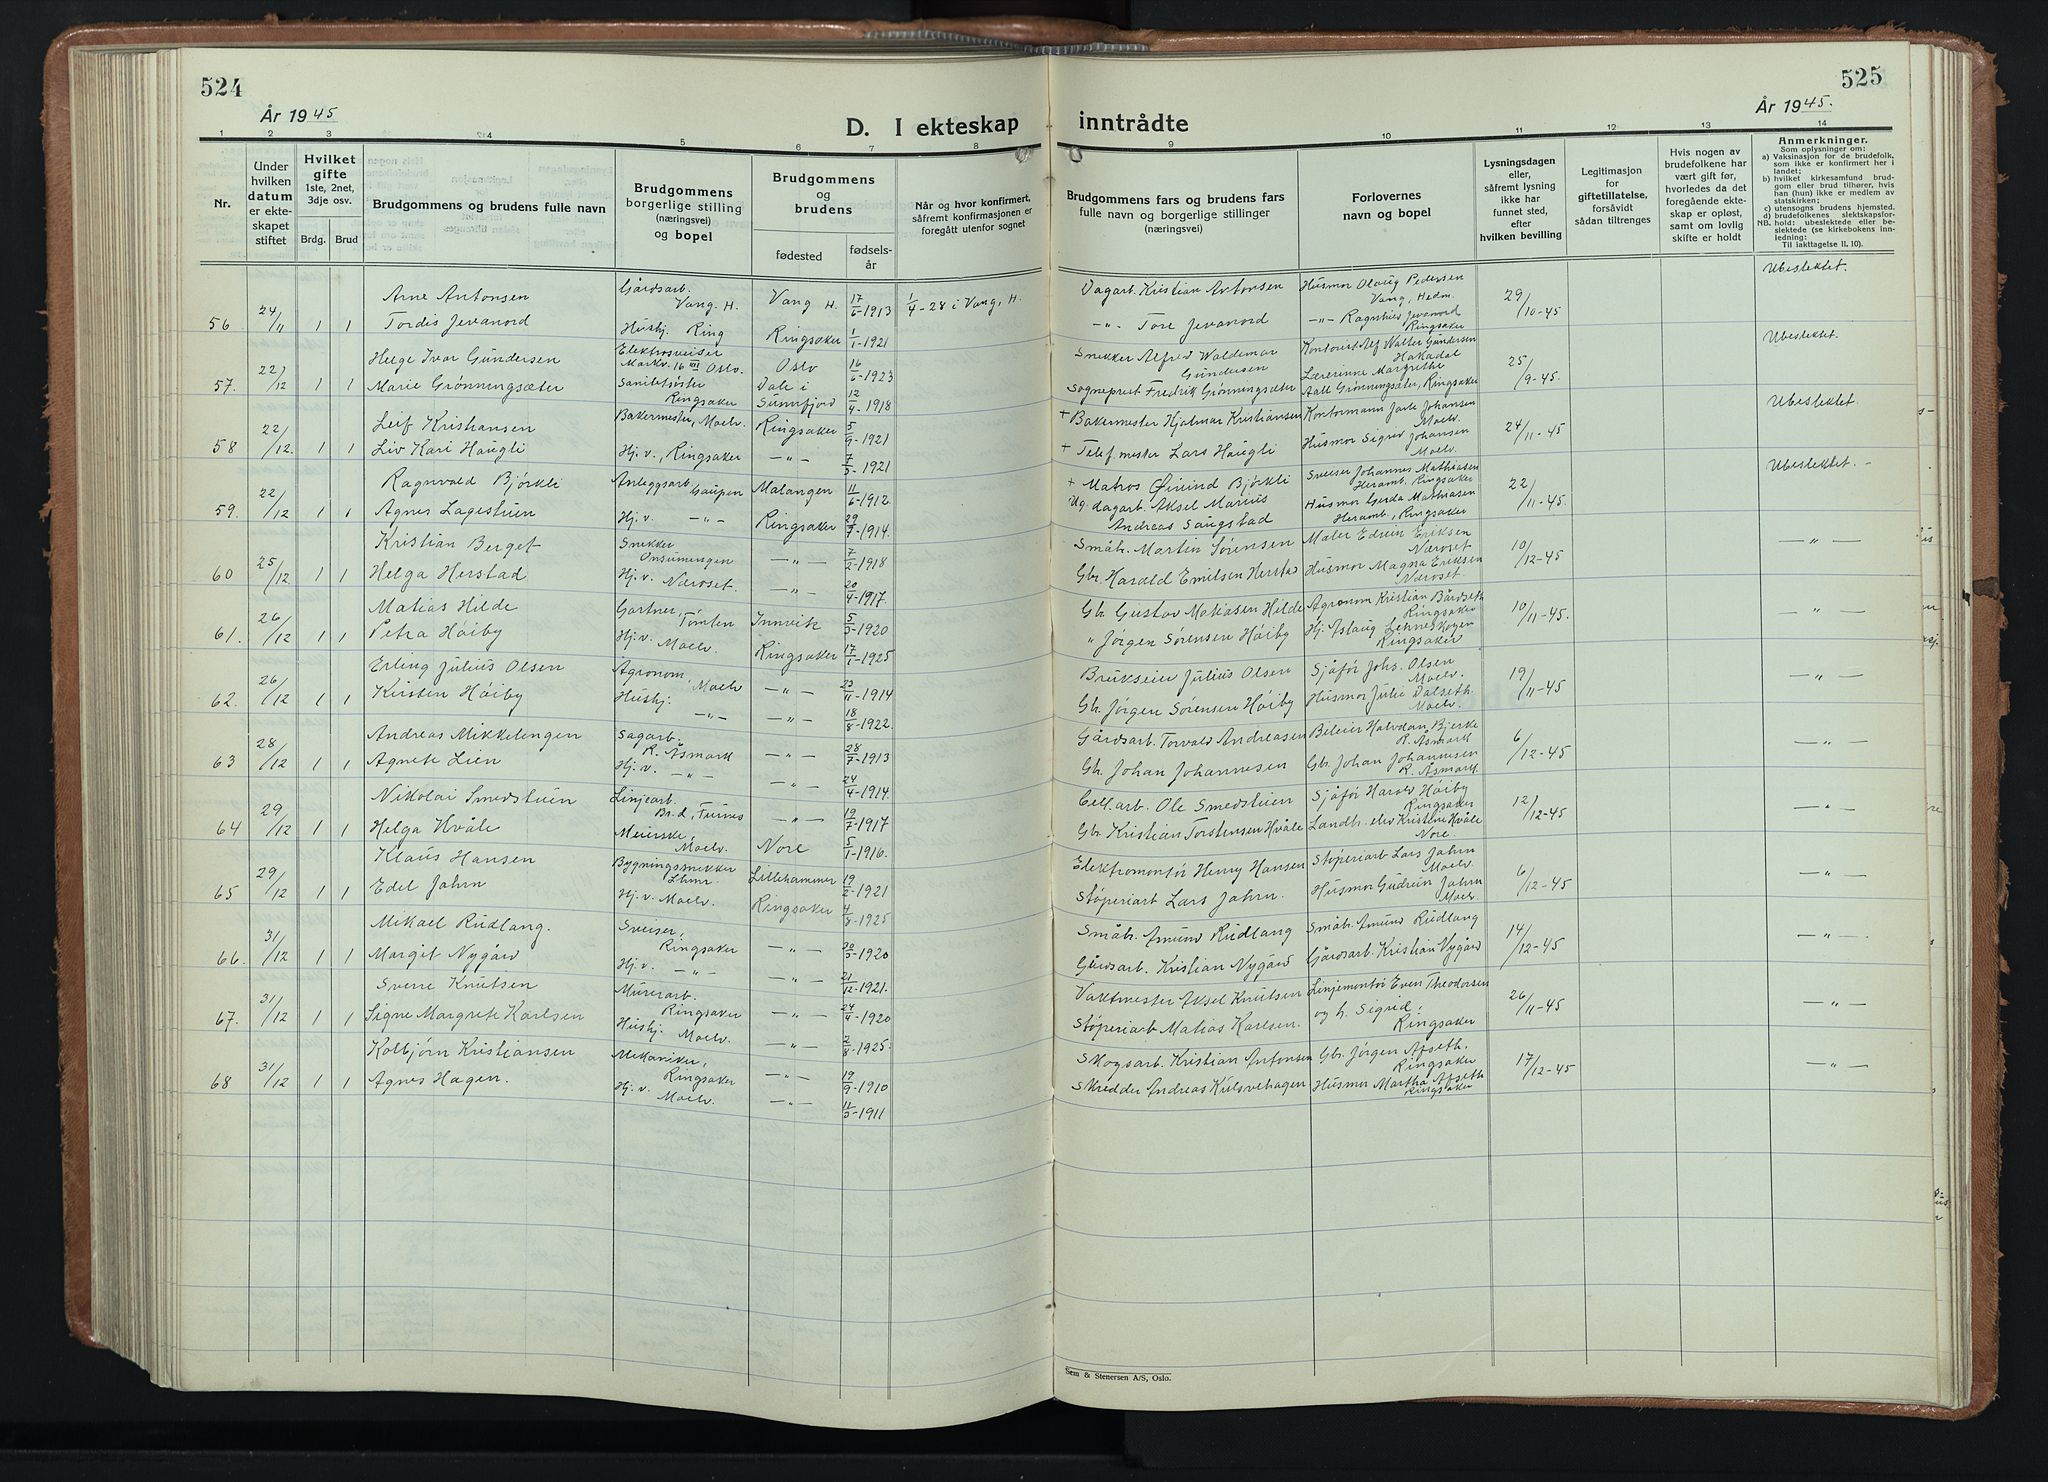 524
År 1945
D. I ekteskap
1 2 3 4 5 6 7 8
Nr.
Under hvilken datum er ekteskapet stiftet
Hvilket gifte
1ste, 2net, 3dje osv.
Brdg. Brud
Brudgommens og brudens fulle navn
Brudgommens borgerlige stilling (næringsvei) og bopel
Brudgommens og brudens
fødested
fødselsår
Når og hvor konfirmert, såfremt konfirmasjonen er foregått utenfor sognet
Arne Antonsen Gårdsarb. Vang. H. Vang H. 17/6-1913 1/4-28 i Vang, H.
56 24/11 1 1 Tordis Jevanord Hushj. Ring Ringsaker 1/1-1921
Helge Ivar Gundersen Elektrosveiser Markv. 16 III Oslo. Oslo 16/6-1923
57. 22/12 1 1 Marie Grønningsæter Sanitetsöster Ringsaker Dale i Sunnfjord 12/4-1918
Leif Kristiansen Bakermester, Moelv. Ringsaker 5/9-1921
58 22/12. 1 1 Liv Kari Haugli Hj.v., Ringsaker —"— 7/3-1921
Ragnvald Bjørkli Anleggsarb. Gaupen Malangen 11/6-1912
59. 22/12 1 1 Agnes Lagestuen Hj.v. —"— Ringsaker 29/7-1914.
Kristian Berget Snekker —"— 7/2-1918
60 25/12. 1 1 Helga Herstad Hj.v. Næroset. —"— 20/4-1917.
Matias Hilde Gartner, Tømten Innvik 5/3-1920
61. 26/12 1 1 Petra Høiby Hj.v. Moelv. Ringsaker 17/1-1925
Erling Julius Olsen Agronom, Moelv —"— 23/11-1914
62. 26/12 1 1 Kirsten Høiby Hushj. —"— —"— 18/8-1922.
Andreas Mikkelengen Sagarb. R. Åsmark —"— 28/7-1913
63 28/12 1 1 Agnete Lien Hj.v. —"— —"— 24/4-1914.
Nikolai Smedstuen Linjearb. Br.d, Furnes —"— 19/7-1917
64 29/12 1 1 Helga Hvåle Meierske, Moelv. Nore 5/1-1916.
Klaus Hansen Bygningssnekker Lhmr. Lillehammer 19/2-1921
65 29/12 1 1 Edel Jahrn Hj.v. Moelv. Ringsaker 4/8-1925
Mikael Rudlang. Sveiser, Ringsaker —"— 20/3-1920
66. 31/12 1 1 Margit Nygård Hj.v. —"— —"— 21/12-1921.
Sverre Knutsen Murerarb. Ringsaker —"— 24/4-1920
67. 31/12 1 1 Signe Margrete Karlsen Hushj. Moelv. —"— 2/8-1925.
Kolbjørn Kristiansen Mekaniker, Ringsaker —"— 19/9-1910
68 31/12 1 1 Agnes Hagen. Hj.v. Moelv. —"— 11/3-1911
525
År 1945.
inntrådte
9 10 11 12 13 14
Brudgommens fars og brudens fars fulle navn og borgerlige stillinger (næringsvei)
Forlovernes navn og bopel
Lysningsdagen eller, såfremt lysning ikke har funnet sted, efter hvilken bevilling
Legitimasjon for giftetillatelse, forsåvidt sådan tiltrenges
Hvis nogen av brudefolkene har vært gift før, hvorledes da det foregående ekteskap er opløst, samt om lovlig skifte er holdt
Anmerkninger.
Som oplysninger om:
a) Vaksinasjon for de brudefolk, som ikke er konfirmert her i landet;
b) hvilket kirkesamfund brudgom eller brud tilhører, hvis han (hun) ikke er medlem av statskirken;
c) utensogns brudens hjemsted.
d) brudefolkenes slektskapsforhold: ubeslektede eller beslektede (se kirkebokens innledning:
NB.
Til iakttagelse II, 10).
Dagarb. Kristian Antonsen Husmor Olaug Pedersen Vang, Hedm. 29/10-45 Ubeslektet.
—"— Tore Jevanord —"— Ragnhild Jevanord Ringsaker
Snekker Alfred Waldemar Gundersen Kontorist Alf Walter Gundersen Hakadal 25/9-45. Ubeslektet.
Sogneprest Fredrik Grønningsæter Lærerinne Margrethe Aall Grønningsæter, Ringsaker
+ Bakermester Hjalmar Kristiansen Kontormann Jarle Johansen Moelv. 24/11-45 Ubeslektet.
+ Telef.mester Lars Haugli Husmor Sigrid Johansen Moelv.
+ Matros Øivind Bjørkli Sveiser Johannes Mathiasen Heramb. Ringsaker 22/11-45. Ubeslektet. -
Ug. dagarb. Aksel Marius Andreas Saugstad Husmor Gerda Mathiasen Heramb., Ringsaker
Småb. Martin Sørensen Maler Edvin Eriksen Næroset 10/12-45 —"—
Gbr. Harald Emilsen Herstad Husmor Magna Eriksen Næroset.
Gb. Gustav Matiasen Hilde Agronom Kristian Bårdseth Ringsaker 10/11-45. —"—
" Jørgen Sørensen Høiby Hj. Aslaug Lehneskogen Ringsaker
Brukseier Julius Olsen Sjåfør Johs. Olsen Moelv. 19/11-45 —"—
Gb. Jørgen Sørensen Høiby Husmor Julie Dalseth. Moelv.
Gårdsarb. Torvald Andreasen Bileier Halvdan Bjerke R. Åsmark 6/12-45 —"—
Gb. Johan Johannesen Gbr. Johan Johannesen R. Åsmark.
Cell.arb. Ole Smedstuen Sjåfør Harald Høiby Ringsaker 12/12-45 —"—
Gbr. Kristian Torstensen Hvåle Landbr. elev Kristine Hvåle Nore.
Elektromontør Henry Hansen Støperiarb Lars Jahrn Moelv. 6/12-45 —"—
Støperiarb Lars Jahrn. Husmor Gudrun Jahrn Moelv.
Småb. Amund Rudlang Småb. Amund Rudlang 14/12-45 —"—
Gårdsarb. Kristian Nygård Gårdsarb. Kristian Nygård
Vaktmester Aksel Knutsen Linjemontør Even Theodorsen 26/11-45 —"—
Støperiarb Matias Karlsen. og h. Sigrid, Ringsaker
Skogsarb. Kristian Antonsen Gbr. Jørgen Afseth. Ringsaker 17/12-45 —"—
Skredder Andreas Kulsvehagen Husmor Martha Afseth Ringsaker
Sem & Stenersen A/S, Oslo.